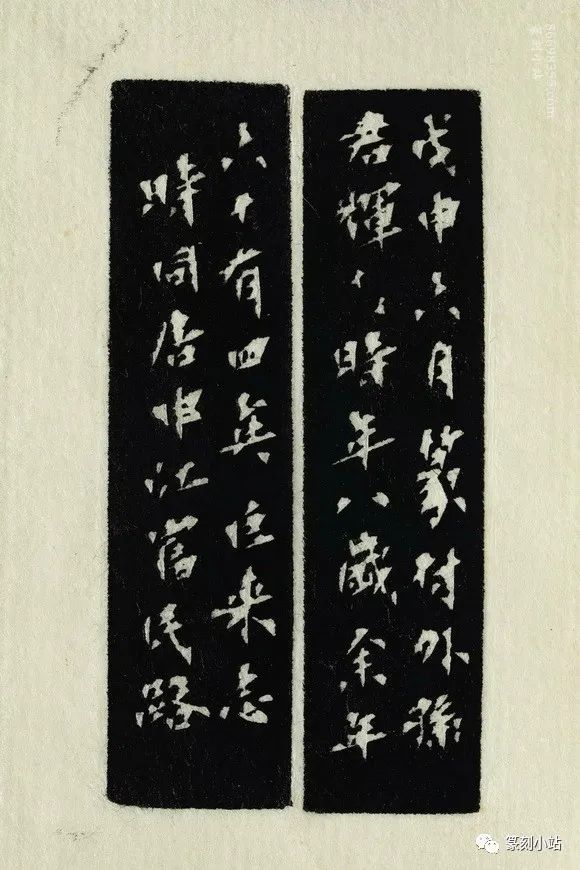 戊申六月篆付外孫
君輝時年八歲余年
六十有四矣巨来志
時同居申江富民路
篆刻小站